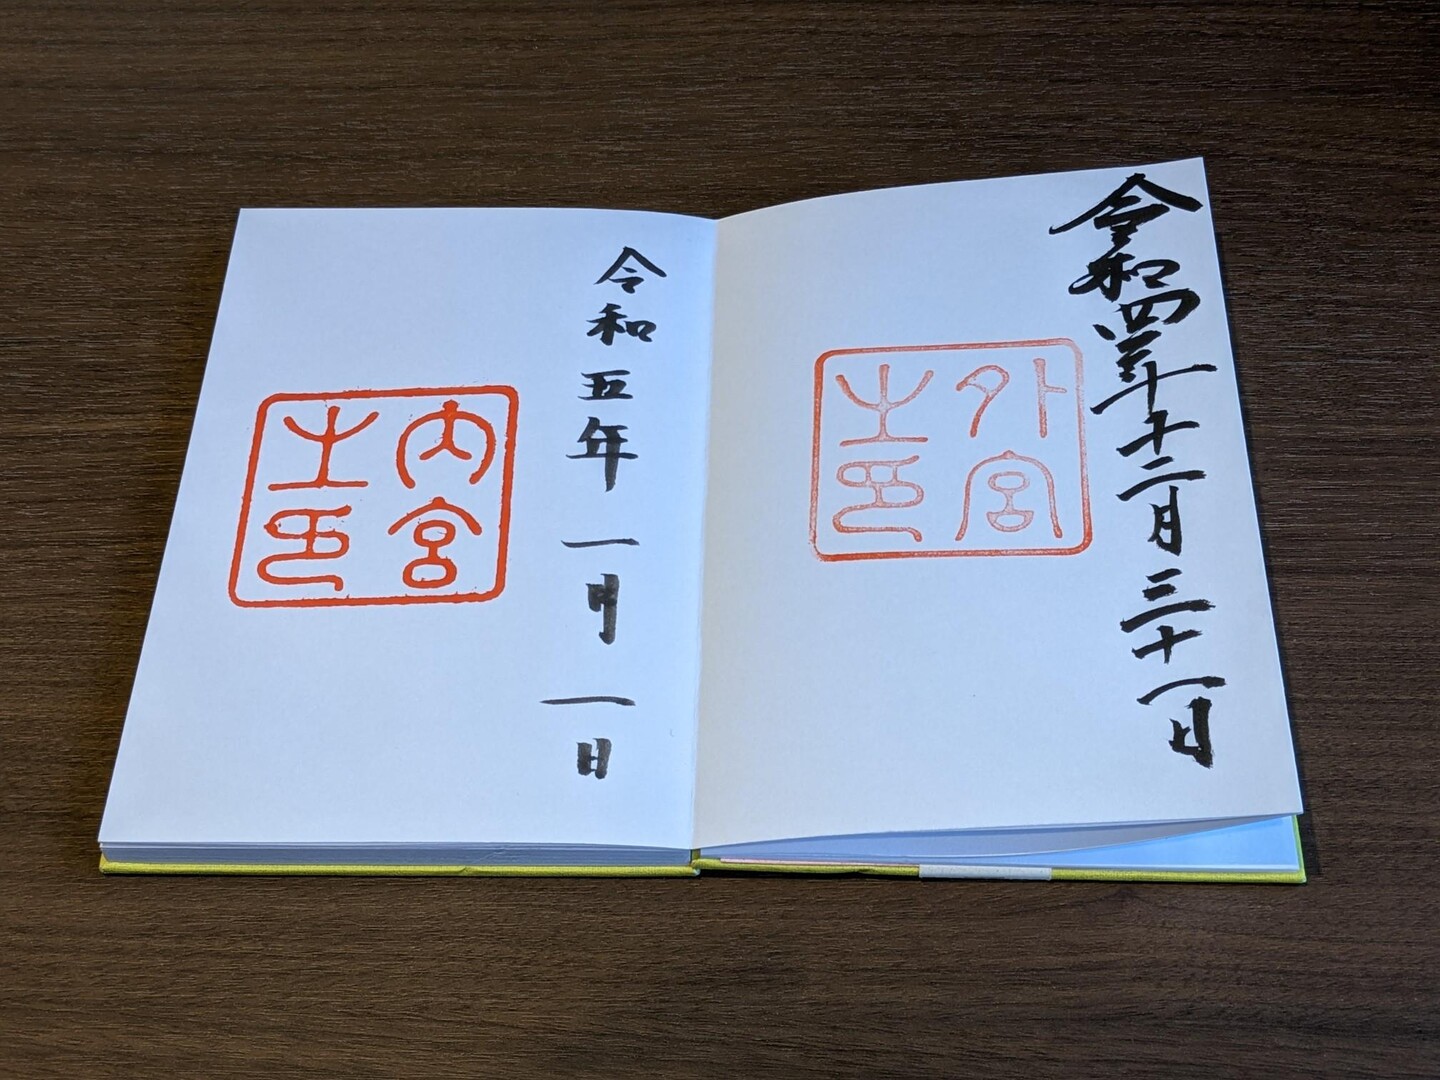 令和四年十二月三十一日
外宮
之印
令和五年一月一日
内宮
之印